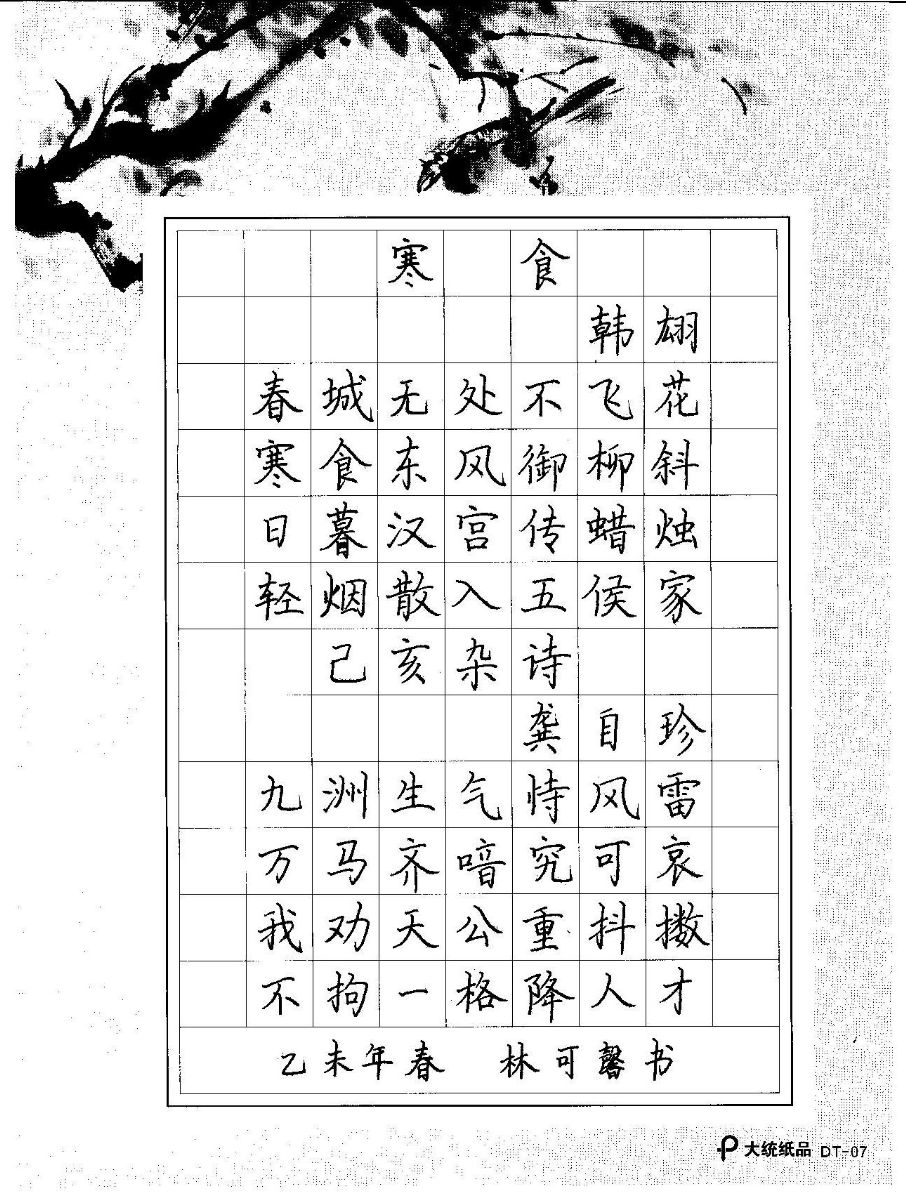 寒食
韩翃
春城无处不飞花
寒食东风御柳斜
日暮汉宫传蜡烛
轻烟散入五侯家
己亥杂诗
龚自珍
九洲生气恃风雷
万马齐喑究可哀
我劝天公重抖擞
不拘一格降人才
乙未年春 林可馨书
大统纸品 DT-07